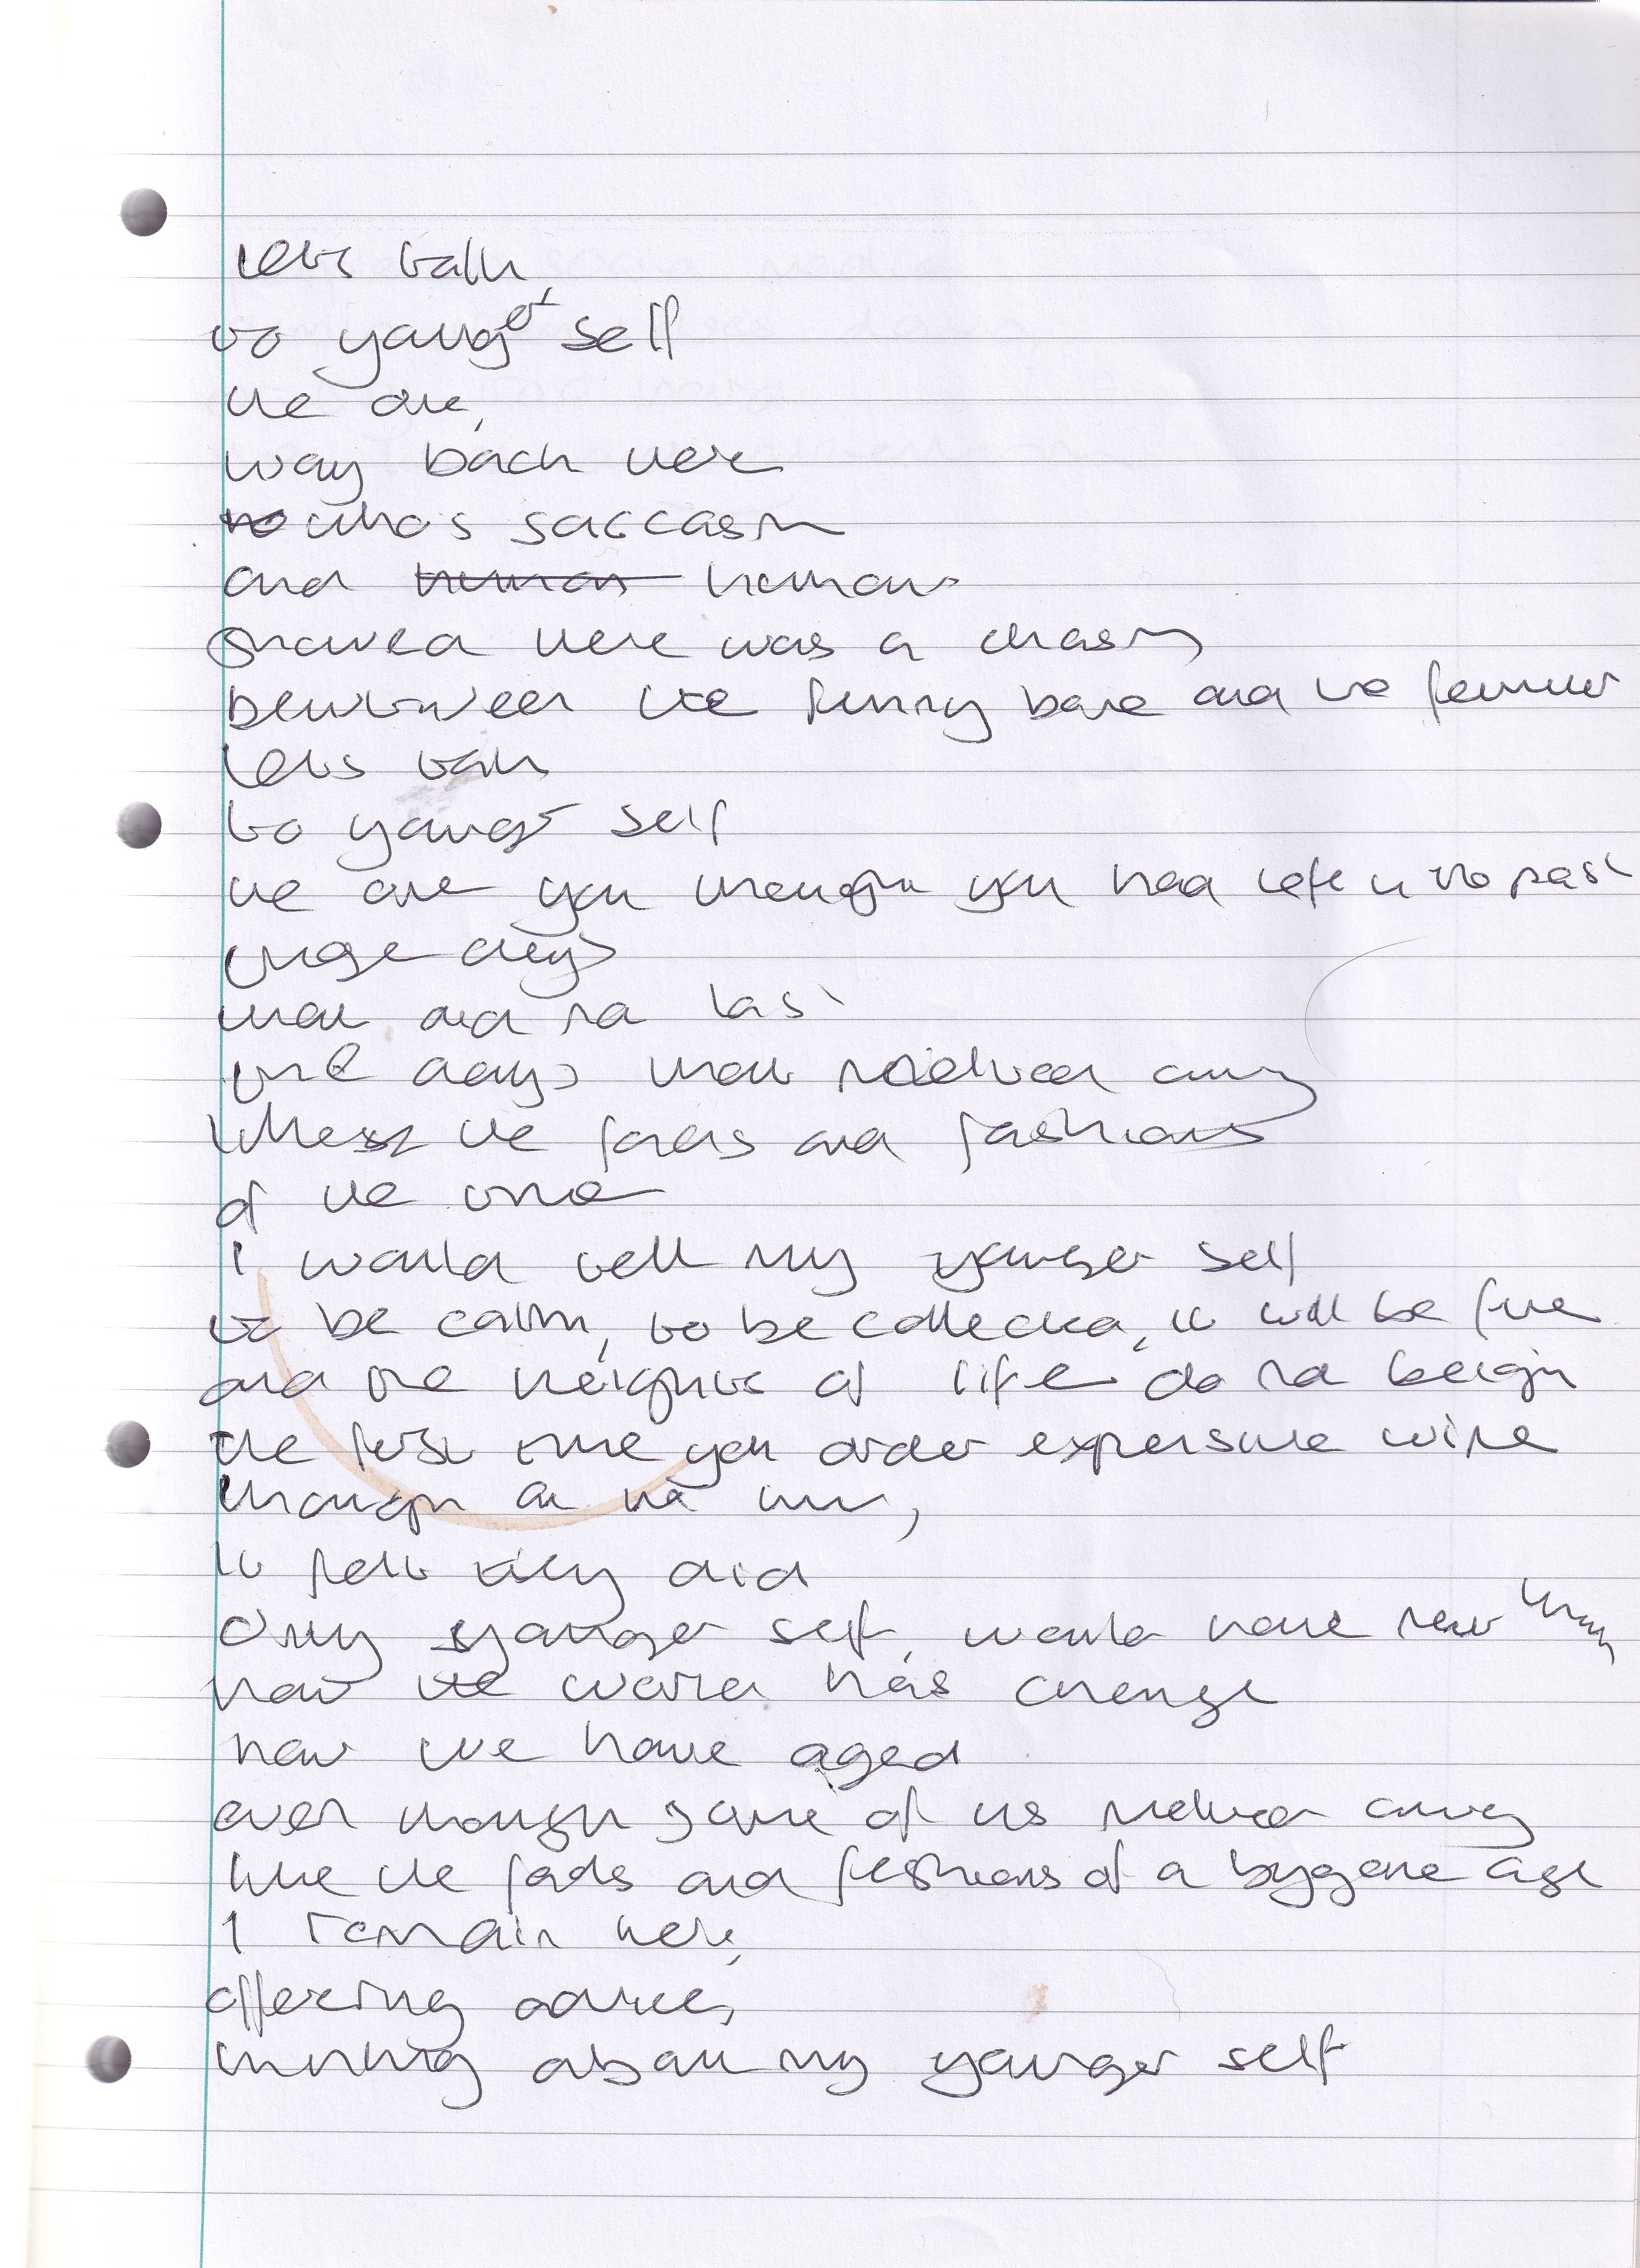 lets talk,
to younger self
the one,
way back there
who's sarcasm
and humour
showed there was a chasm
between the funny bone and the femur
lets talk
to younger self
the one you thought you had left in the past
those days
that did not last
the days that melted away
like the fads and fashions
of the time
I would tell my younger self
to be calm, to be collected, it will be fine
and the heights of life do not begin
the first time you order expensive wine
though at the time,
it felt they did
O my younger self, would have never
how the world has change
how we have aged
even though some of us melted away
like the fads and fashions of a bygone age
I remain here,
offering advice,
thinking about my younger self